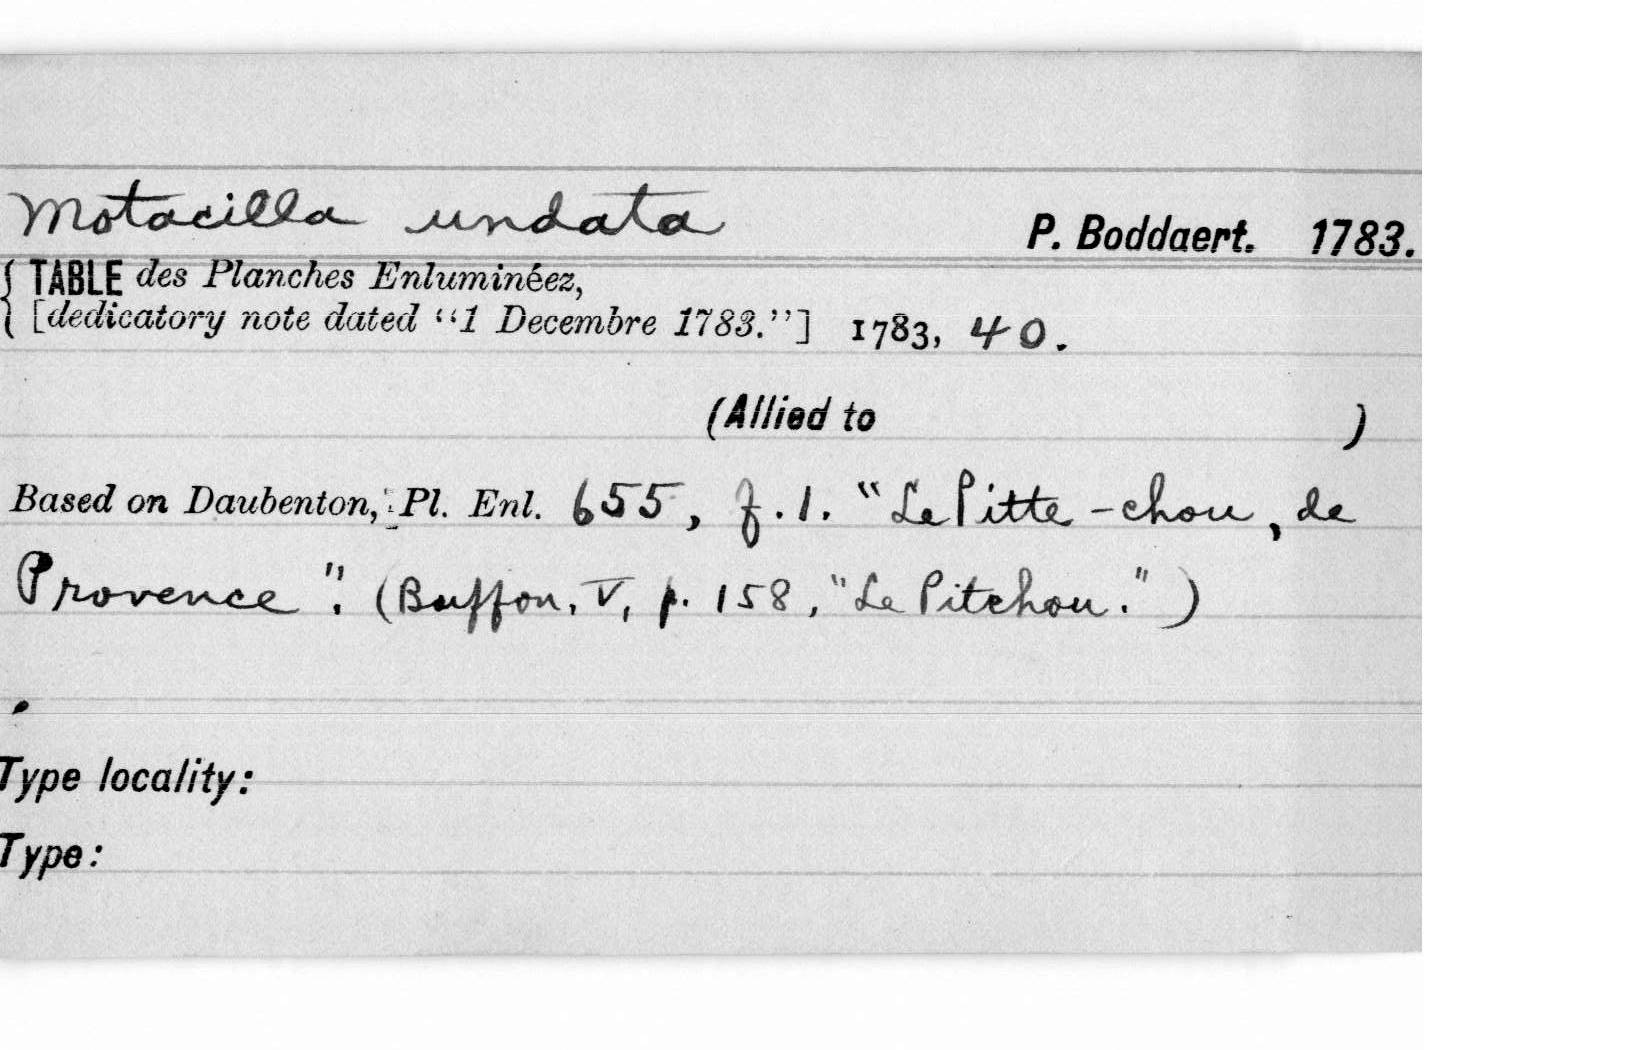 Motacilla undata P. Boddaert. 1783.
{ TABLE des Planches Enluminéez,
[dedicatory note dated “1 Decembre 1783.”] 1783, 40.
(Allied to )
Based on Daubenton, Pl. Enl. 655, f.1. "Le Pitte-chou, de
Provence". (Buffon, V, p. 158, "Le Pitchou.")
Type locality:
Type: